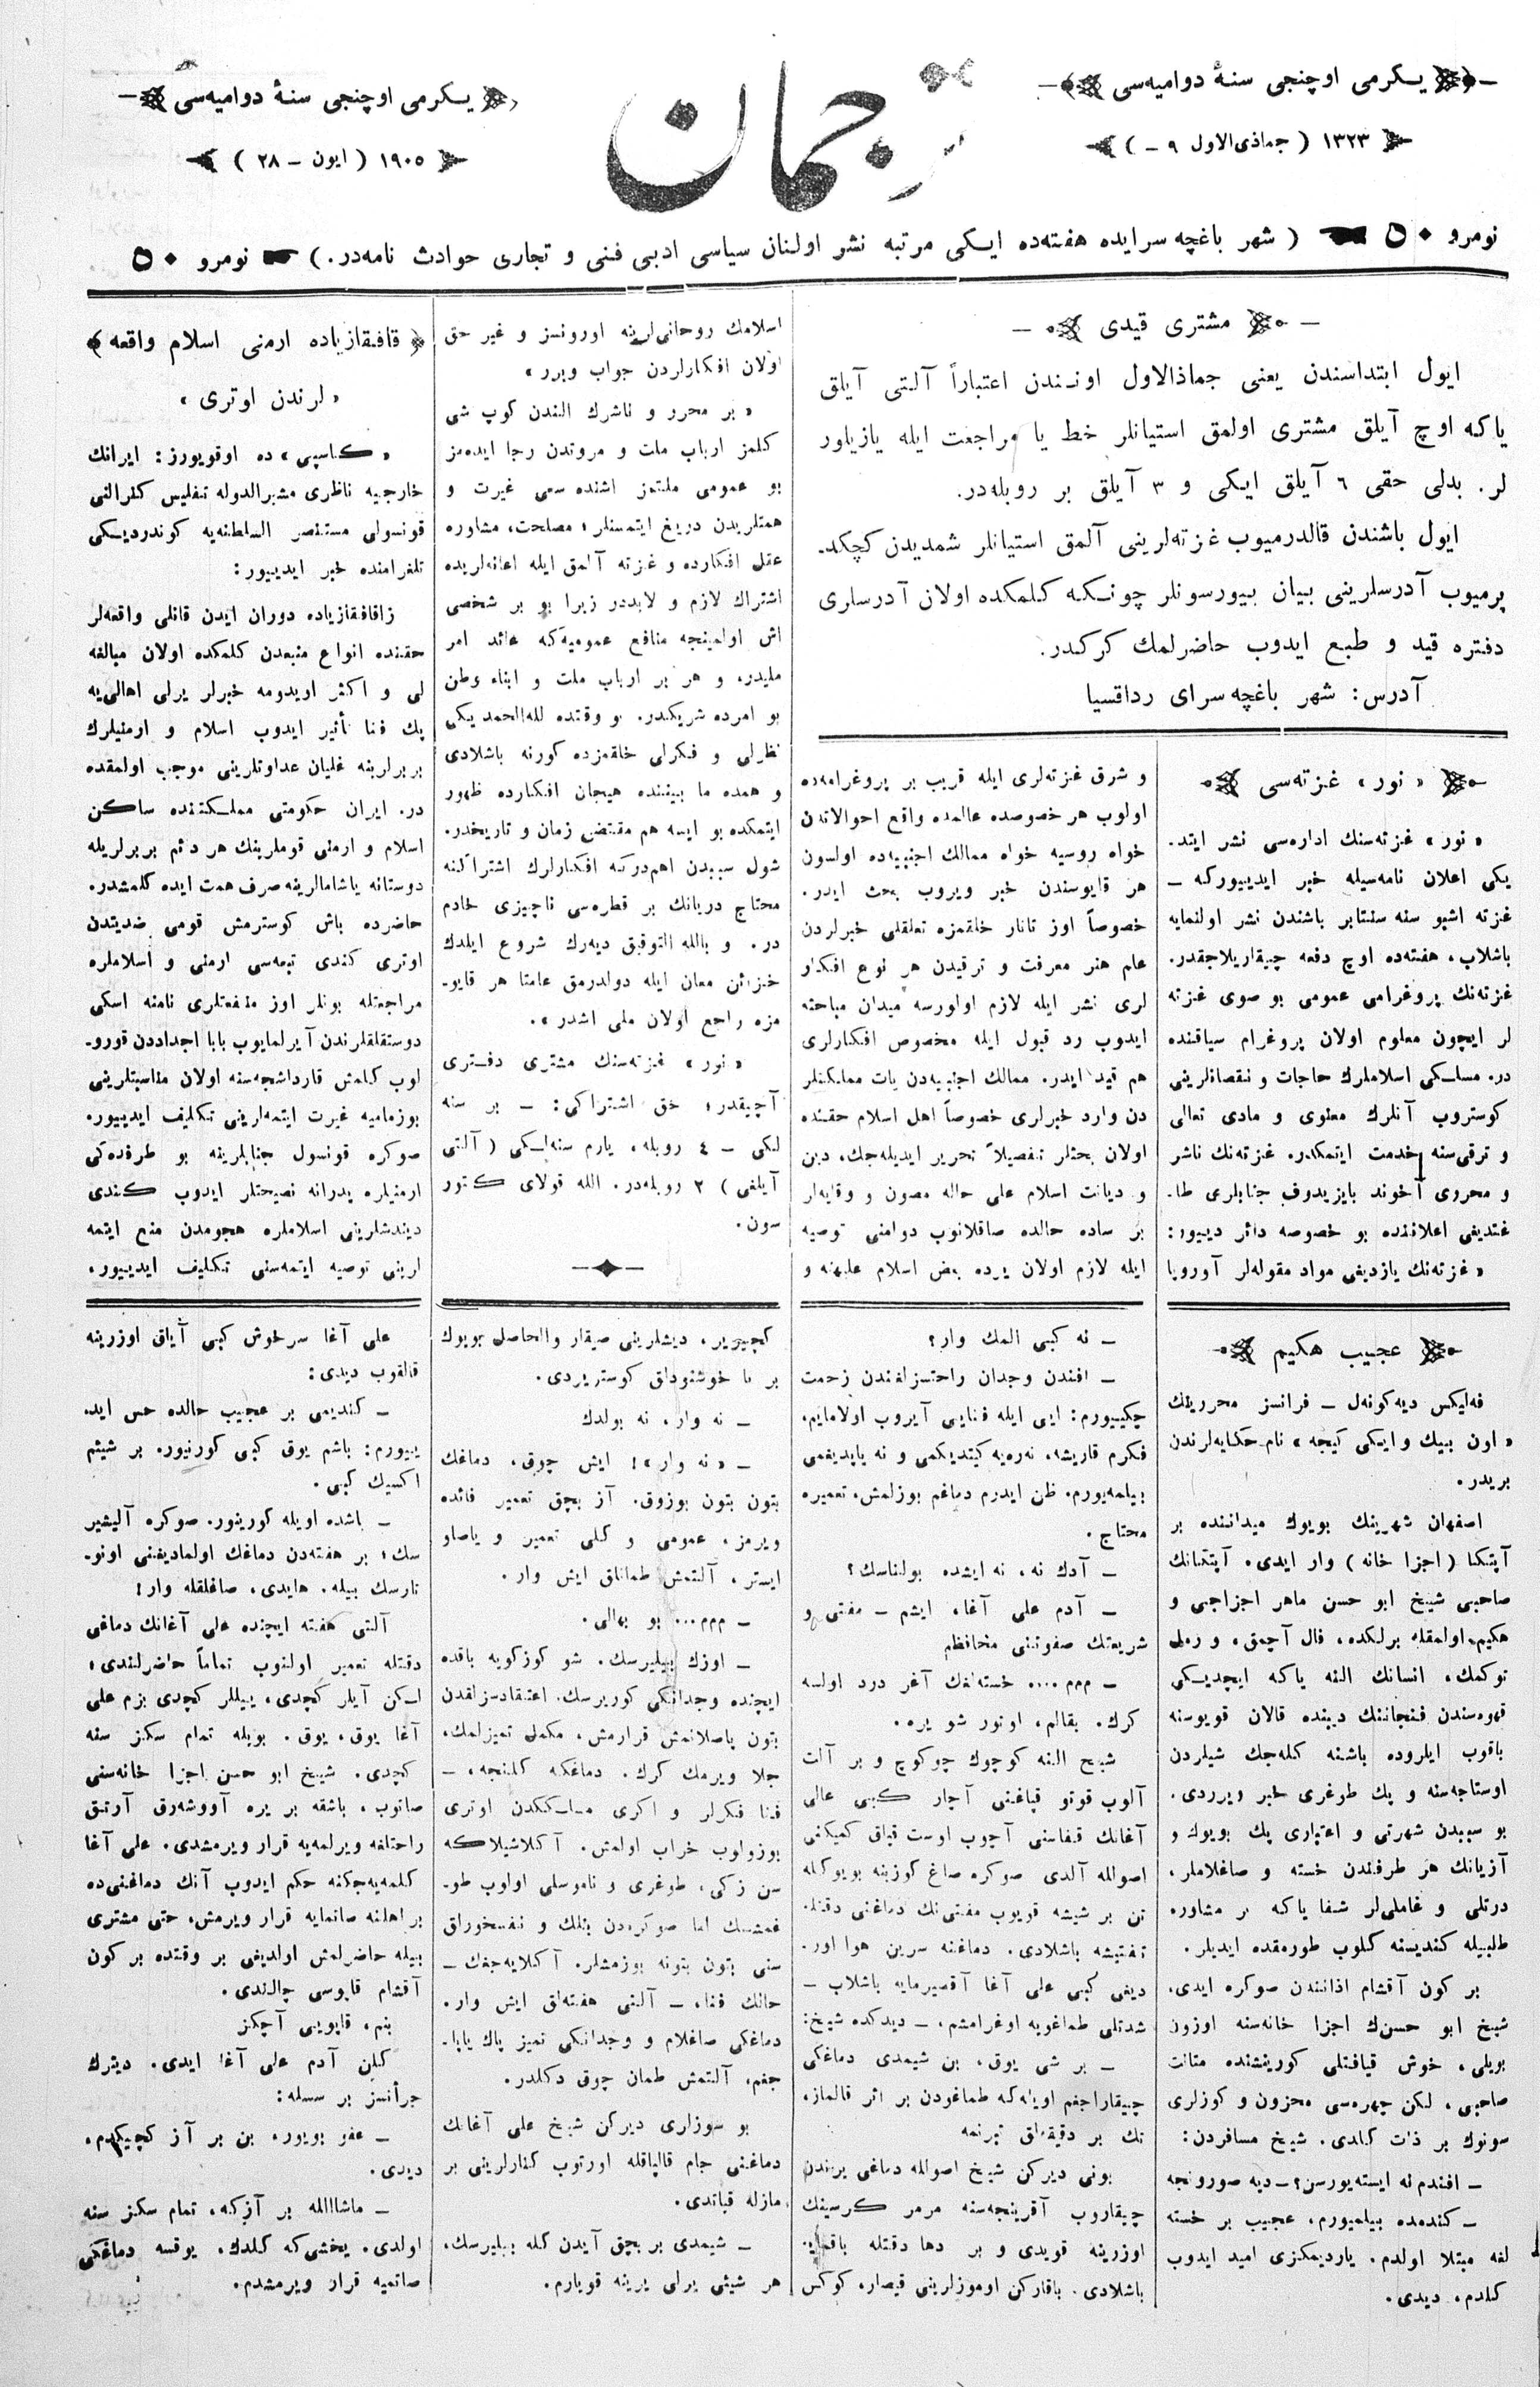 یـکرمی اوچنجی سنهٔ دوامیه‌سی
١٣٢٣ ( جماذی‌الاول ٩ – )
ترجمان
یـکرمی اوچنجی سنهٔ دوامیه‌سی
١٩٠٥ ( ایون – ٢٨ )
نومرو ٥٠ ( شهر باغچه سرایده هفته‌ده ایـکی مرتبه نشر اولنان سیاسی ادبی فنی و تجاری حوادث نامه‌در. ) نومرو ٥٠
– مشتری قیدی –
ایول ابتداسندن یعنی جماذالاول اونـندن اعتباراً آلـتی آیلق
یاکه اوچ آیلق مشتری اولمق استیانلر خط یا مراجعت ایله یازیلور
لر. بدلی حقی ٦ آیلق ایـکی و ٣ آیلق بر روبله‌در.
ایول باشندن قالدرمیوب غزته‌لرینی آلمق استیانلر شمدیدن کچکد-
یرمیوب آدرسلرینی بیان بیورسونلر چونـکه کـلمکده اولان آدرسلری
دفتره قید و طبع ایدوب حاضرلمك کرکدر.
آدرس: شهر باغچه‌سرای رداقسیا
« نور » غزته‌سی
« نور » غزته‌سنك اداره‌سی نشر ایتد-
یکی اعلان نامه‌سیله خبر ایدییورکه –
غزته اشبو سنه سنتابر باشندن نشر اولنمایه
باشلاب، هفته‌ده اوچ دفعه چیقاریلاجقدر.
غزته‌نك پروغرامی عمومی بو صوی غزته
لر ایچون معلوم اولان پروغرام سیاقنده
در. مسلـکی اسلاملرك حاجات و نقصانلرینی
کوستروب آنلرك معنوی و مادی تعالی
و ترقی‌سنه خدمت ایتمکدر. غزته‌نك ناشر
و محرری آخوند بایزیدوف جنابلری طا-
غتدیغی اعلاننده بو خصوصه دائر دییور:
« غزته‌نك یازدیغی مواد مقوله‌لر آوروپا
و شرق غزته‌لری ایله قریب بر پروغرامده
اولوب هر خصوصده عالمده واقع احوالاتدن
خواه روسیه خواه ممالك اجنبیه‌ده اولسون
هر قایوسندن خبر ویروب بحث ایدر.
خصوصاً اوز تاتار خلقمزه تعلقلی خبرلردن
علم هنر معرفت و ترقیدن هر نوع افکار
لری نشر ایله لازم اولورسه میدان مباحثه
ایدوب رد قبول ایله مخصوص افکارلری
هم قید ایدر. ممالك اجنبیه‌دن یات مملکتلر
دن وارد خبرلری خصوصاً اهل اسلام حقنده
اولان بحثلر تفصیلاً تحریر ایدیله‌جك، دین
و دیانت اسلام علی حاله مصون و وقایه‌لر
بر ساده حالده صاقلانوب دوامنی توصیه
ایله لازم اولان یرده بعض اسلام علیهنه و
اسلامك روحانی‌لرینه اورونسز و غیر حق
اولان افکارلردن جواب ویرر »
« بر محرر و ناشرك النـدن کوپ شی
کلمز ارباب ملت و مروتدن رجا ایده‌مز
بو عمومی ملتمز اشنده سعی غیرت و
همتلریدن دریغ ایتمسنلر؛ مصلحت، مشاوره
عقل افکارده و غزته آلمق ایله اعانه‌لریده
اشتراك لازم و لابددر زیرا بو بر شخصی
اش اولمینجه منافع عمومیه‌که عائد امر
ملیدر، و هر بر ارباب ملت و ابناء وطن
بو امرده شریکدر. بو وقتده لله‌الحمد یکی
نظرلی و فکرلی خلقمزده کورنه باشلادی
و همده ما بیننده هیجان افکارده ظهور
ایتمکده بو ایسه هم مقتضی زمان و تاریخدر.
شول سببدن اهم‌درکه افکارلرك اشتراکنه
محتاج دریانك بر قطره‌سی ناچیزی خادم
در. و بالله التوفیق دیه‌رك شروع ایلدك
خزائن معان ایله دولدرمق عامتا هر قایو-
مزه راجع اولان ملی اشدر ».
« نور » غزته‌سنك مشتری دفـتری
آچیقدر؛ حق اشتراکی: – بر سنه
لکی – ٤ روبله، یارم سنه‌لـکی ( آلتی
آیلغی ) ٢ روبله‌در. الله قولای کتور
سون.
قافقازیاده ارمنی اسلام واقعه
« لرندن اوتری »
« کـاسپی » ده اوقویورز: ایرانك
خارجیه ناظری مشیرالدوله تفلیس کنرالنی
قونسولی مستنصر السلطنه‌یه کوندردیـکی
تلغرامنده خبر ایدییور:
زاقافقازیاده دوران ایدن قانلی واقعه‌لر
حقنده انواع منبعدن کلمکده اولان مبالغه
لی و اکثر اویدومه خبرلر یرلی اهالی‌یه
پك فنا تأثیر ایدوب اسلام و ارمنیلرك
بربرلرینه غلیان عداوتلرینی موجب اولمقده
در. ایران حکومتی مملـکتنده ساکن
اسلام و ارمنی قوملرینك هر دئم بربرلریله
دوستانه یاشامالرینه صرف همت ایده کلمشدر.
حاضرده باش کوسترمش قومی ضدیتدن
اوتری کندی تبعه‌سی ارمنی و اسلاملره
مراجعتله بونلر اوز منفعتلری نامنه اسکی
دوستقلقلرندن آیرلمایوب بابا اجداددن قورو-
لوب کلمش قارداشجه‌سنه اولان مناسبتلرینی
بوزمامیه غیرت ایتمه‌لرینی تکلیف ایدییور.
صوکره قونسول جنابلرینه بو طرفده‌کی
ارمنیلره پدرانه نصیحتلر ایدوب کـندی
دیندشلرینی اسلاملره هجومدن منع ایتمه
لرینی توصیه ایتمه‌سنی تکلیف ایدییور.
عجیب هکیم
فه‌لیکس دیه کونه‌ل – فرانسز محررینك
« اون بیك و ایـکی کیجه » نام حکایه‌لرندن
بریدر.
اصفهان شهرینك بویوك میداننده بر
آپتکا ( اجزا خانه ) وار ایدی. آپتکانك
صاحبی شیخ ابو حسن ماهر اجزاجی و
هکیم اولمقله برلکده، فال آچمق، و رمل
توکمك، انسانك النه یاکه ایچدیـکی
قهوه‌سندن فنجاننك دیبنده قالان قویوسنه
باقوب ایلروده باشنه کله‌جك شیلردن
اوستاجه‌سنه و پك طوغری خبر ویرردی.
بو سببدن شهرتی و اعتباری پك بویوك و
آزیانك هر طرفندن خسته و صاغلاملر،
درتلی و غاملی‌لر شفا یاکه بر مشاوره
طلبیله کندیسنه کلوب طورمقده ایدیلر.
بر کون آقشام اذانندن صوکره ایدی،
شیخ ابو حسن‌ك اجزا خانه‌سنه اوزون
بویلی، خوش قیافتلی کورینشنده متانت
صاحبی، لکن چهره‌سی محزون و کوزلری
سونوك بر ذات کلدی. شیخ مسافردن:
– افندم نه ایسته‌یورسن؟ – دیه صورونجه
– کندمده بیلمیورم، عجیب بر خسته
لغه مبتلا اولدم. یاردیمکزی امید ایدوب
کلدم، دیدی.
– نه کبی المك وار؟
– افندن وجدان راحتسزلغندن زحمت
چکییورم: ایی ایله فنایی آیروب اولامایم،
فکرم قاریشه، نه‌ره‌یه کیتدیکمی و نه یاپدیغمی
بیلمه‌یورم. ظن ایدرم دماغم بوزلمش، تعمیره
محتاج.
– آدك نه، نه ایشده بولناسك؟
– آدم علی آغا، ایشم – مفتی و
شریعتك صفوتنی محافظم
– ممم .... خسته‌لغك آغر درد اولسه
کرك. بقالم، اوتور شو یره.
شیخ النه کوچوك چوکوچ و بر آلت
آلوب قوتو قپاغنی آچار کـبی عالی
آغانك قفاسنی آچوب اوست قپاق کمیکنی
اصوالله آلدی صوکره صاغ کوزینه بویوکله
تن بر شیشه قویوب مفتی‌نك دماغنی دقتله
تفتیشه باشلادی. دماغنه سرین هوا اور-
دیغی کبی علی آغا آقصیرمایه باشلاب –
شدتلی طماغویه اوغرامشم، – دیدکده شیخ:
– بر شی یوق، بن شیمدی دماغکی
چیقاراجغم اویله‌که طماغودن بر اثر قالماز،
تك بر دقیقه‌لق تپرنمه
بونی دیرکن شیخ اصوالله دماغی یرندن
چیقاروب آقرینجه‌سنه مرمر کـرسینك
اوزرینه قویدی و بر دها دقتله باقمایه
باشلادی. باقارکن اوموزلرینی قیصار، کوکس
کچیریر، دیشلرینی صیقار والحاصل بویوك
بر نا خوشنودلق کوستریردی.
– نه وار، نه بولدك
– « نه وار »! ایش چوق، دماغك
بتون بتون بوزوق. آز بچق تعمیر فائده
ویرمز، عمومی و کلی تعمیر و یاصاو
ایستر، آلتمش طمانلق ایش وار.
– ممم... بو بهالی.
– اوزك بیلیرسك. شو کوزکویه باقده
ایچنده وجدانکی کوریرسك. اعتقادسزلقدن
بتون پاصلانمش قرارمش، مکمل تمیزلمك،
جلا ویرمك کرك. دماغکه کلنجه، –
فنا فکرلر و اکری مسلـککدن اوتری
بوزولوب خراب اولمش. آکلاشیلاکه
سن زکی، طوغری و ناموسلی اولوب طو-
غمشسك اما صوکره‌دن بنلك و نفسخورلق
سنی بتون بتونه بوزمشلر. آکلایه‌جغك –
حالك فنا، – آلتی هفته‌لق ایش وار.
دماغکی صاغلام و وجدانکی تمیز پاك یاپا-
جغم، آلتمش طمان چوق دکلدر.
بو سوزلری دیرکن شیخ علی آغانك
دماغنی جام قالپاقله اورتوب کنارلرینی بر
مازله قپاتدی.
– شیمدی بر بچق آیدن کله بیلیرسك،
هر شیئی یرلی یرینه قویارم.
علی آغا سرخوش کبی آیاق اوزرینه
قالقوب دیدی:
– کندیمی بر عجیب حالده حس اید-
ییورم: باشم یوق کبی کورنیور. بر شیئم
اکسیك کبی.
– باشده اویله کورینور. صوکره آلیشیر
سك؛ بر هفته‌دن دماغك اولمادیغنی اونو-
تارسك بیله. هایدی، صاغلقله وار!
آلتی هفته ایچنده علی آغانك دماغی
دقتله تعمیر اولنوب تماماً حاضرلندی؛
لـکن آیلر کچدی، ییللر کچدی بزم علی
آغا یوق، یوق. بویله تمام سکز سنه
کچدی. شیخ ابو حسن اجزا خانه‌سنی
صاتوب، باشقه بر یره آووشه‌رق آرتیق
راحتلغه ویرلمه‌یه قرار ویرمشدی. علی آغا
کلمه‌یه‌جکنه حکم ایدوب آنك دماغنی‌ده
بر اهلنه صاتمایه قرار ویرمش، حتی مشتری
بیله حاضرلمش اولدیغی بر وقتده بر کون
آقشام قاپوسی چالندی.
بنم، قاپویی آچکز
کلن آدم علی آغا ایدی. دیترك
جرأتسز بر سسله:
– عفو بویور، بن بر آز کچیکدم،
دیدی.
– ماشاالله بر آزکه، تمام سکز سنه
اولدی. یخشی‌که کلدك، یوقسه دماغکی
صاتمیه قرار ویرمشدم.